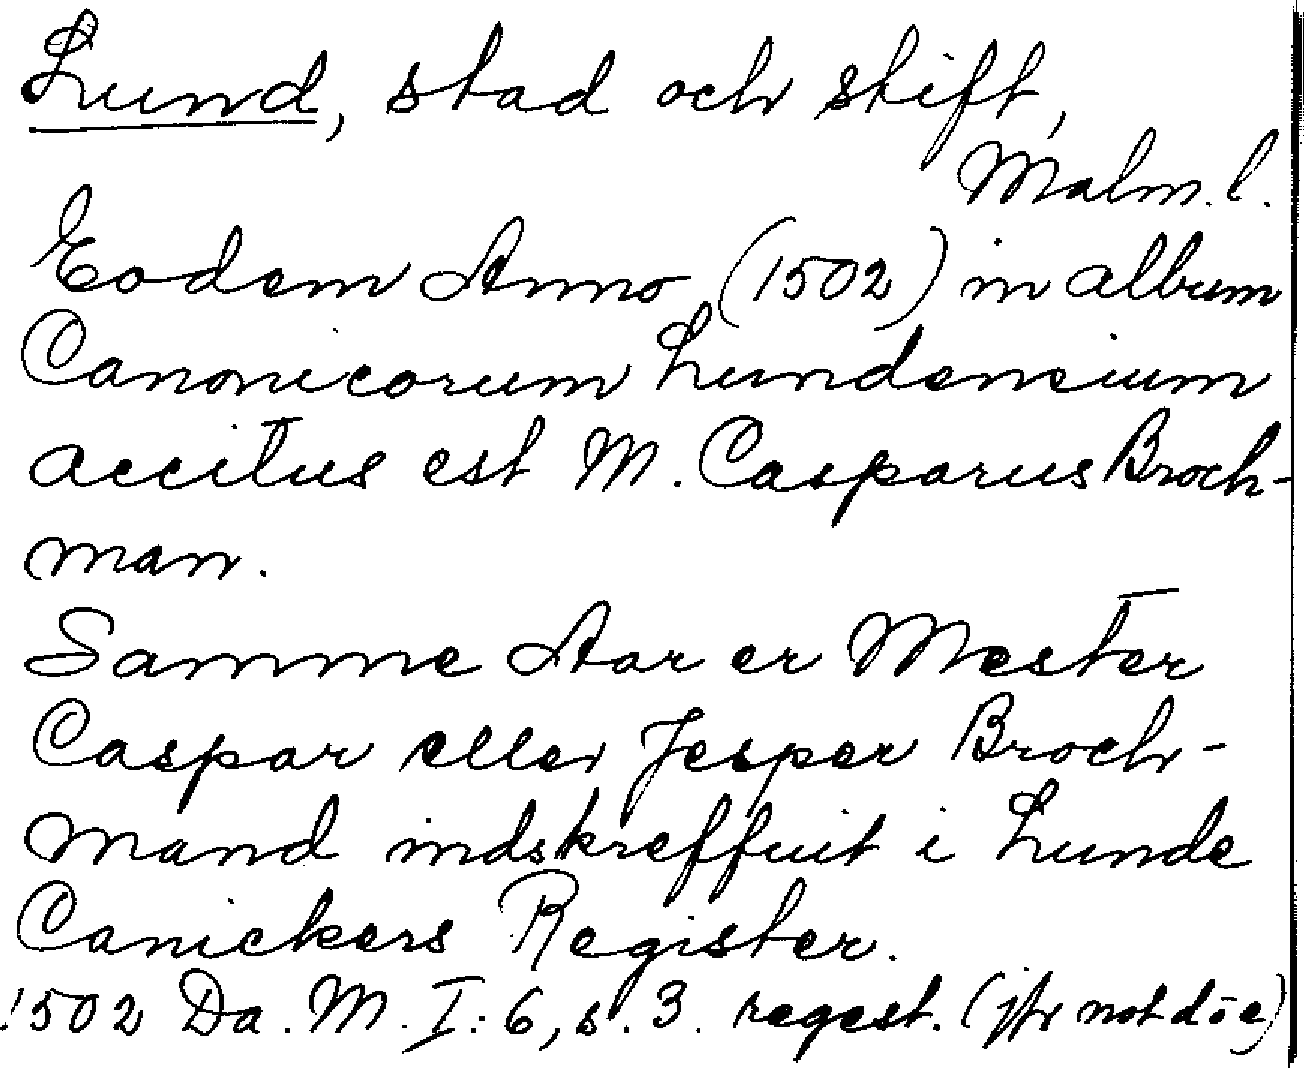 Lund, stad och skift,
Malm. l.
Eodem Anno (1502) in album
Canonicorum Lundensium
accitus est M. Casparus Broch-
man.
Samme Aar er Mester
Caspar eller Jesper Broch-
mand indskreffuit i Lunde
Canickers Register.
1502 Da. M. I: 6, s. 3. regest. (jfr not d o e)